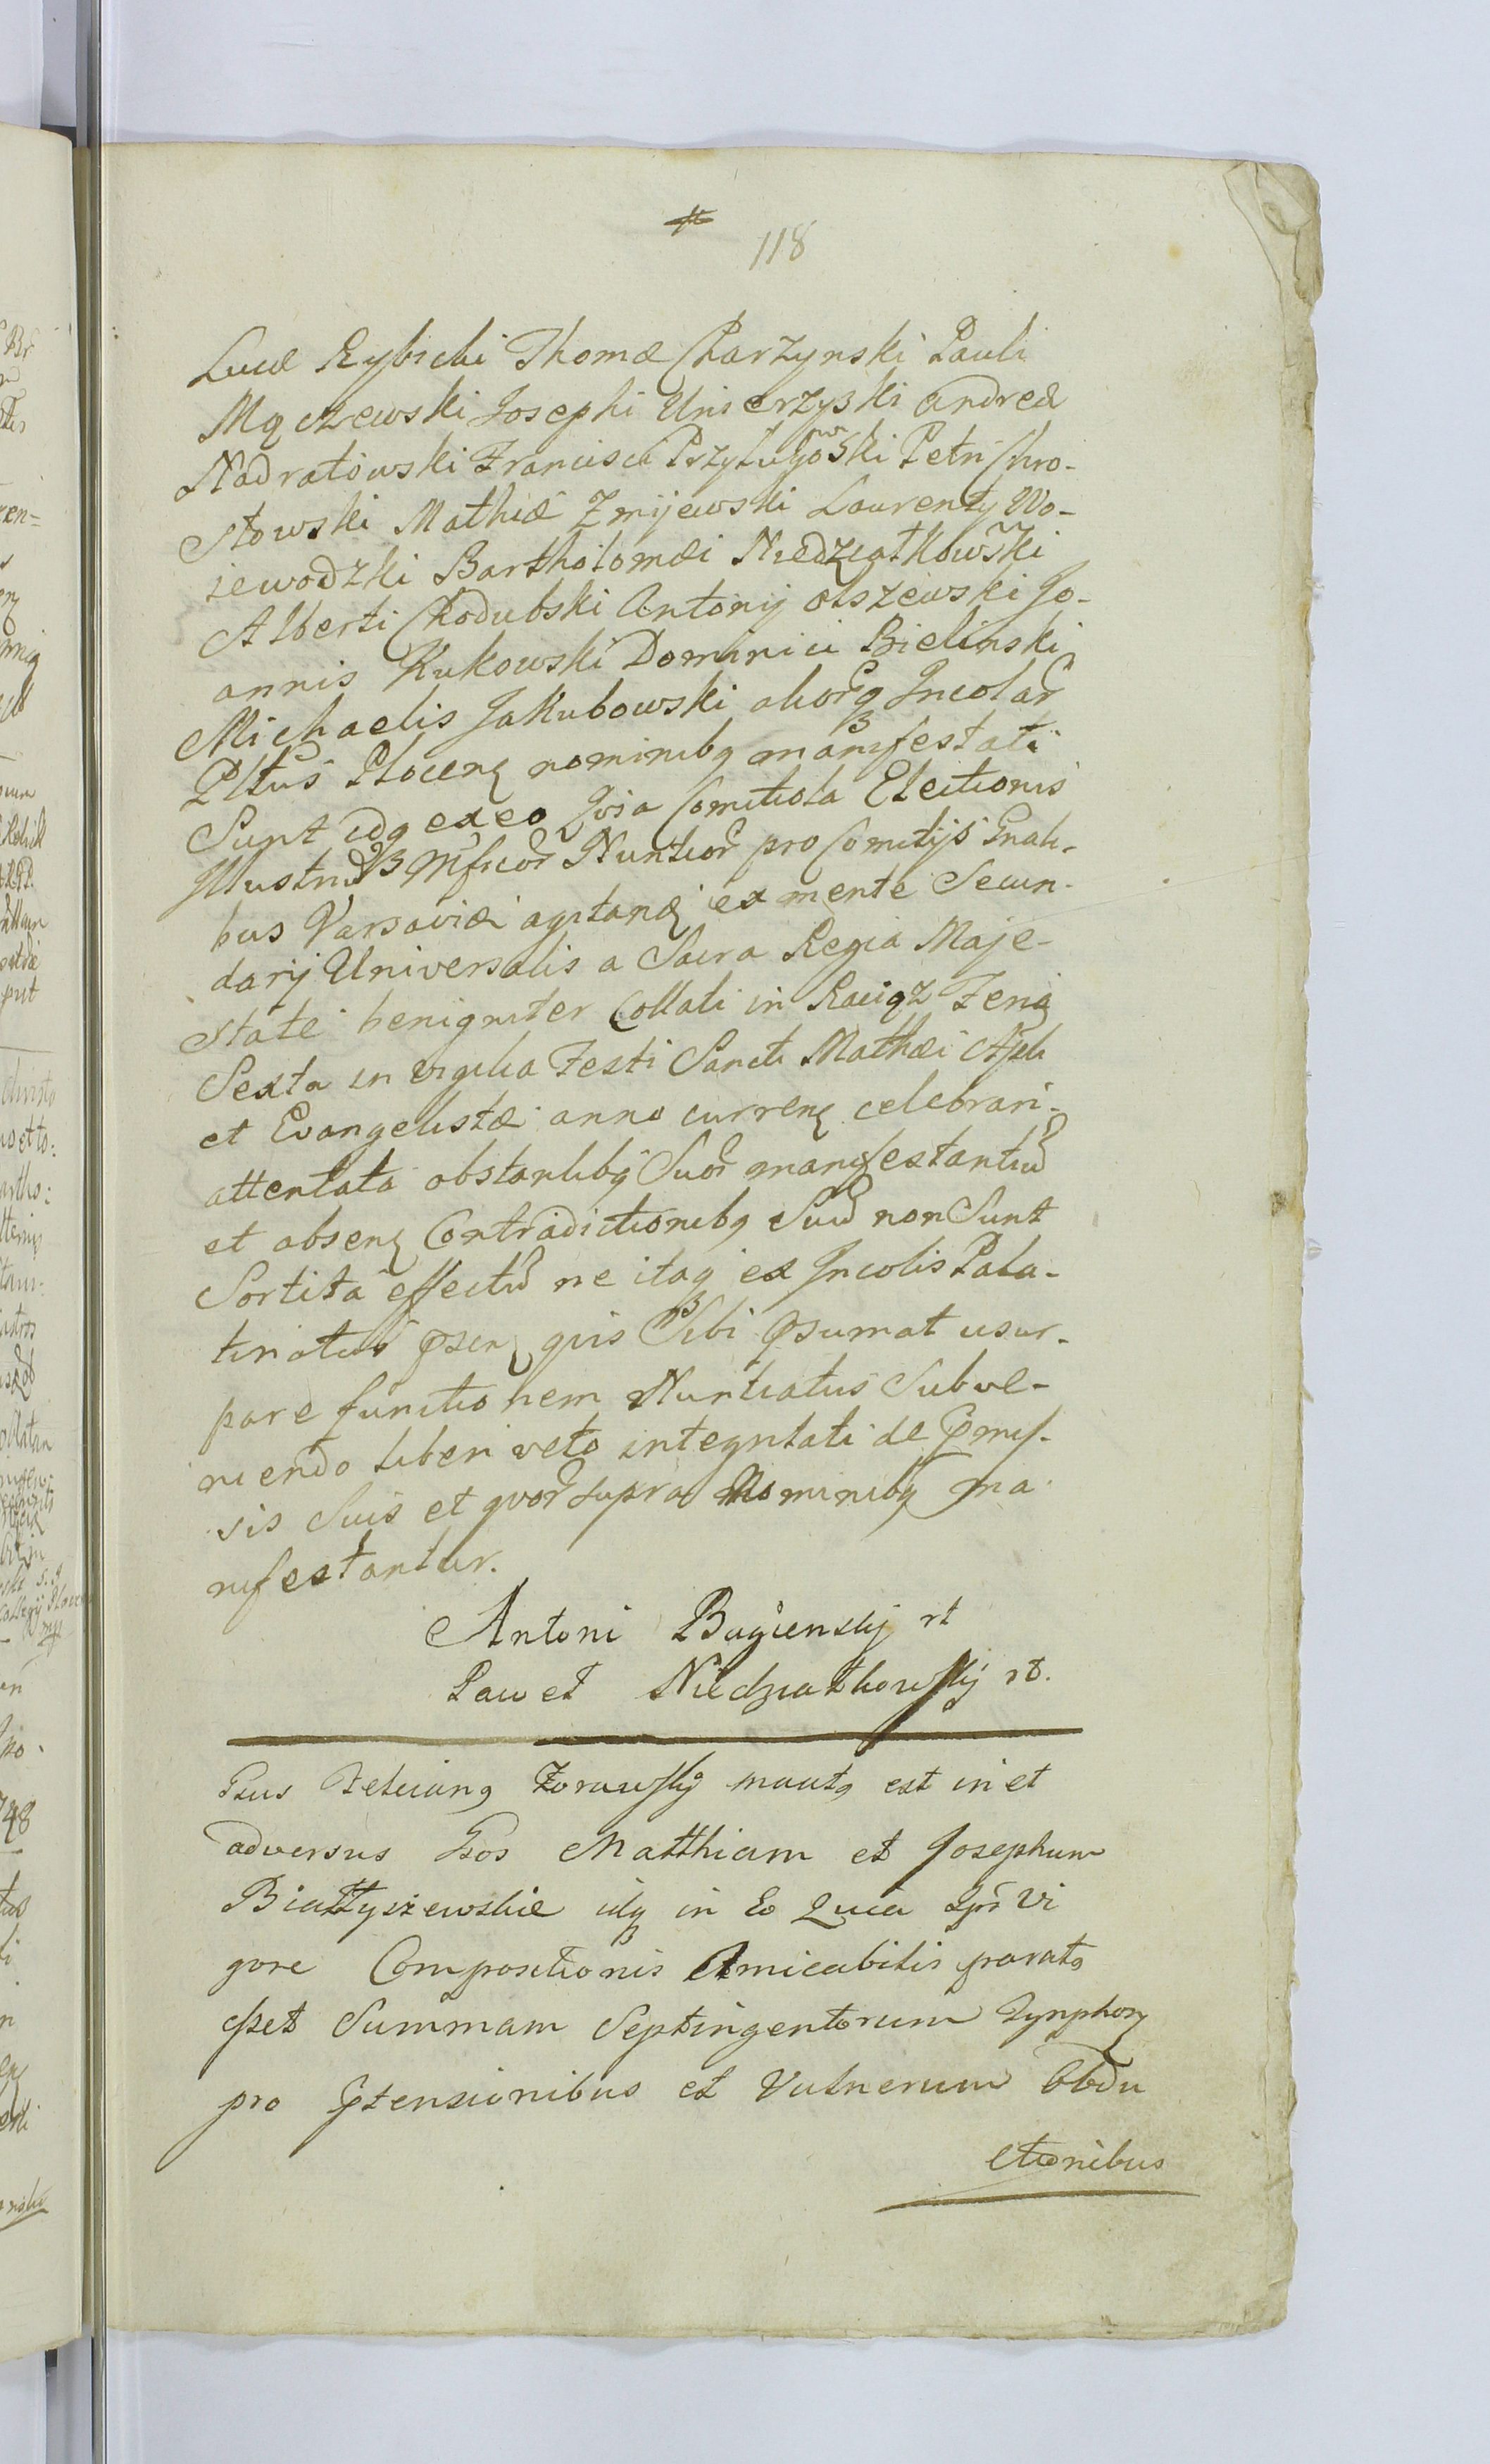 118
Lucæ Rybicki Thomæ Charzynski Pauli
Mączewski Josephi Unierzyski Andreæ
Nadratowski Francisci Przyługowski Petri Chro-
stowski Mathiæ Zmijewski Laurenty Wo-
iewodzki Bartholomæi Niedziałkowski
Alberti Chodubski Antonij Olszewski Jo-
annis Kukowski Dominici Bielinski
Michaelis Jakubowski aliorq Incolar
Pltus Plocen nominibq manifestati
Sunt idq ex eo Quia Comitiola Electionis
Illustriu Mficor Nuntior pro Comitijs Gnali-
bus Varsaviæ agitand ex mente Secun-
darij Universalis a Sacra Regia Maje-
state benigniter Collati in Raciąz Feria
Sexta in vigilia Festi Sancti Mathæi Apli
et Evangelistæ anno curren celebrari
attentata obstantibq Suor manifestantiu
et absen Contradictionibq Suu non Sunt
Sortita effectu ne itaq ex Incolis Pala-
tinatus psen quis Sibi psumat usur-
pare functionem Nuntiatus Subve-
niendo liberi veto integritati de pmis-
sis Suis et quor supra Nominibq ma
nifestantur.
Antoni Bagienskij rt
Paweł Niedziałkowskij rt.
Gsus Felicianq Zorawskij manifestatq est in et
adversus Gsos Matthiam et Josephum
Białłyszewskie idq in Eo Quia Ipsi Vi
gore Compositionis Amicabilis paratq
esset Summam Septingentorum Tynphon
pro ptensionibus et Vulnerum Obdu
ctionibus